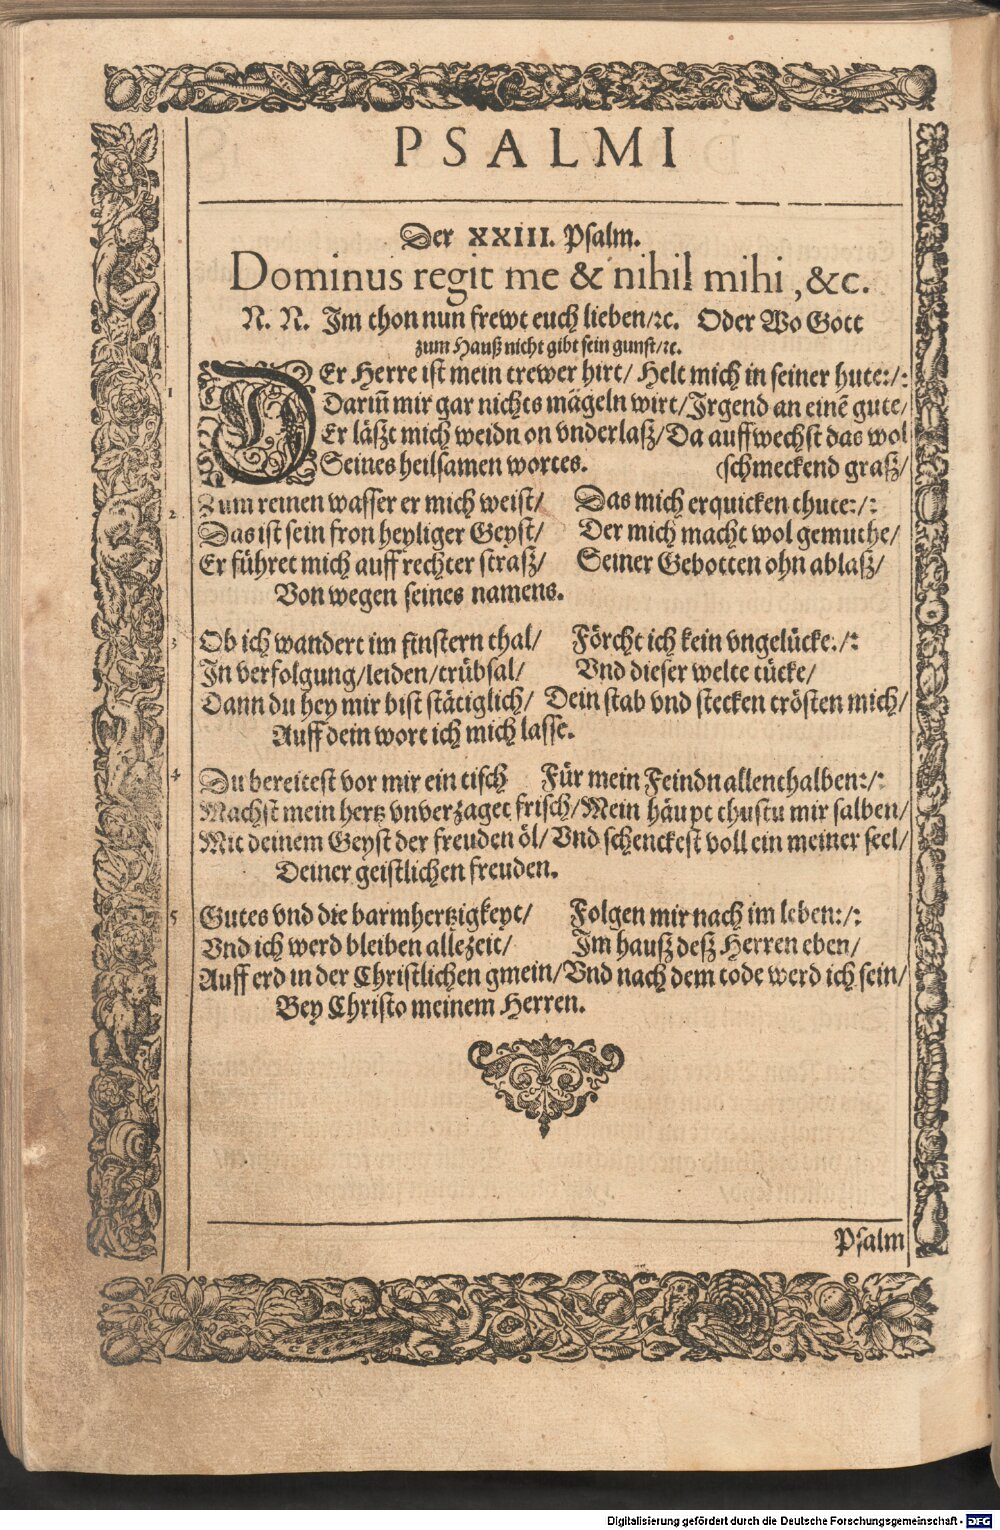 PSALMI
Der XXIII. Psalm.
Dominus regit me & nihil mihi, &c.
N. N. Im thon nun frewt euch lieben/ꝛc. Oder Wo Gott
zum Hauß nicht gibt sein gunst/ꝛc.
1 DEr Herre ist mein trewer hirt/ Helt mich in seiner hute:/:
Darum̃ mir gar nichts mãgeln wirt/Irgend an einẽ gute/
Er läßzt mich weidn on vnderlaß/Da auffwechst das wol
Seines heilsamen wortes. (schmeckend graß/
2 Zum reinen wasser er mich weist/ Das mich erquicken thute:/:
Das ist sein fron heyliger Geyst/ Der mich macht wol gemuthe/
Er führet mich auff rechter straß/ Seiner Gebotten ohn ablaß/
Von wegen seines namens.
3 Ob ich wandert im finstern thal/ Förcht ich kein vngelücke:/:
In verfolgung/leiden/trübsal/ Vnd dieser welte tücke/
Dann du bey mir bist stätiglich/ Dein stab vnd stecken trösten mich/
Auff dein wort ich mich lasse.
4 Du bereitest vor mir ein tisch Für mein Feindn allenthalben:/:
Machst mein hertz vnverzaget frisch/Mein häupt thustu mir salben/
Mit deinem Geyst der freuden öl/ Vnd schenckest voll ein meiner seel/
Deiner geistlichen freuden.
5 Gutes vnd die barmhertzigkeyt/ Folgen mir nach im leben:/:
Vnd ich werd bleiben allezeit/ Im hauß deß Herren eben/
Auff erd in der Christlichen gmein/Vnd nach dem tode werd ich sein/
Bey Christo meinem Herren.
Psalm
Digitalisierung gefördert durch die Deutsche Forschungsgemeinschaft - DFG